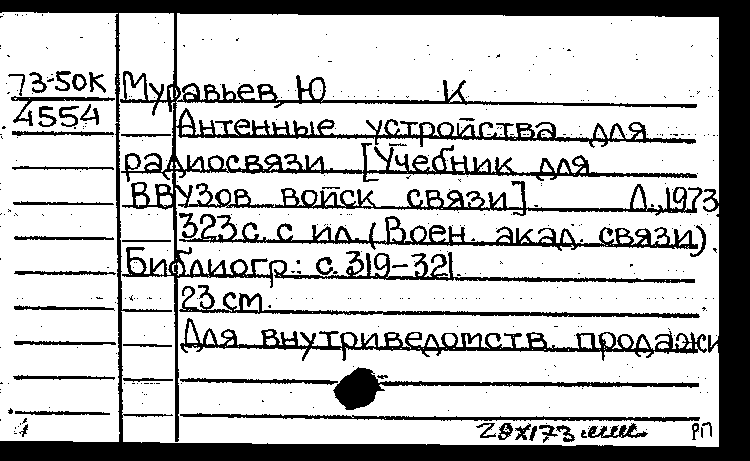 73-50К Муравьев, Ю К
4554 Антенные устройства для
радиосвязи. [Учебник для
ВВУЗов войск связи]. Л., 1973.
323 с. с ил. (Воен. акад. связи).
Библиогр.: с. 319-321.
23 cm.
Для внутриведомств. продажи
РП